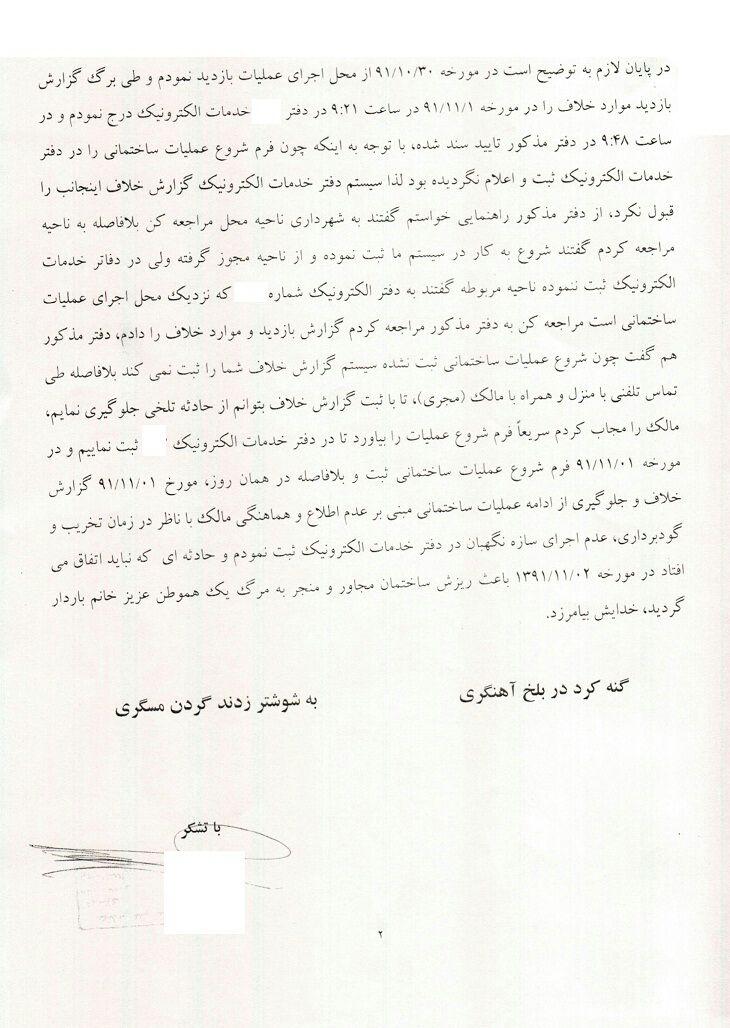 در پایان لازم به توضیح است در مورخه ۹۱/۱۰/۳۰ از محل اجرای عملیات بازدید نمودم و طی برگ گزارش
بازدید موارد خلاف را در مورخه ۹۱/۱۱/۱ در ساعت ۹:۲۱ در دفتر خدمات الکترونیک درج نمودم و در
ساعت ۹:۴۸ در دفتر مذکور تایید سند شده، با توجه به اینکه چون فرم شروع عملیات ساختمانی را در دفتر
خدمات الکترونیک ثبت و اعلام نگردیده بود لذا سیستم دفتر خدمات الکترونیک گزارش خلاف اینجانب را
قبول نکرد، از دفتر مذکور راهنمایی خواستم گفتند به شهرداری ناحیه محل مراجعه کن بلافاصله به ناحیه
مراجعه کردم گفتند شروع به کار در سیستم ما ثبت نموده و از ناحیه مجوز گرفته ولی در دفاتر خدمات
الکترونیک ثبت ننموده ناحیه مربوطه گفتند به دفتر الکترونیک شماره که نزدیک محل اجرای عملیات
ساختمانی است مراجعه کن به دفتر مذکور مراجعه کردم گزارش بازدید و موارد خلاف را دادم، دفتر مذکور
هم گفت چون شروع عملیات ساختمانی ثبت نشده سیستم گزارش خلاف شما را ثبت نمی کند بلافاصله طی
تماس تلفنی با منزل و همراه با مالک (مجری)، تا با ثبت گزارش خلاف بتوانم از حادثه تلخی جلوگیری نمایم،
مالک را مجاب کردم سریعاً فرم شروع عملیات را بیاورد تا در دفتر خدمات الکترونیک ثبت نماییم و در
مورخه ۹۱/۱۱/۰۱ فرم شروع عملیات ساختمانی ثبت و بلافاصله در همان روز، مورخ ۹۱/۱۱/۰۱ گزارش
خلاف و جلوگیری از ادامه عملیات ساختمانی مبنی بر عدم اطلاع و هماهنگی مالک با ناظر در زمان تخریب و
گودبرداری، عدم اجرای سازه نگهبان در دفتر خدمات الکترونیک ثبت نمودم و حادثه ای که نباید اتفاق می
افتاد در مورخه ۱۳۹۱/۱۱/۰۲ باعث ریزش ساختمان مجاور و منجر به مرگ یک هموطن عزیز خانم باردار
گردید، خدایش بیامرزد.
گنه کرد در بلخ آهنگری به شوشتر زدند گردن مسگری
با تشکر
۲